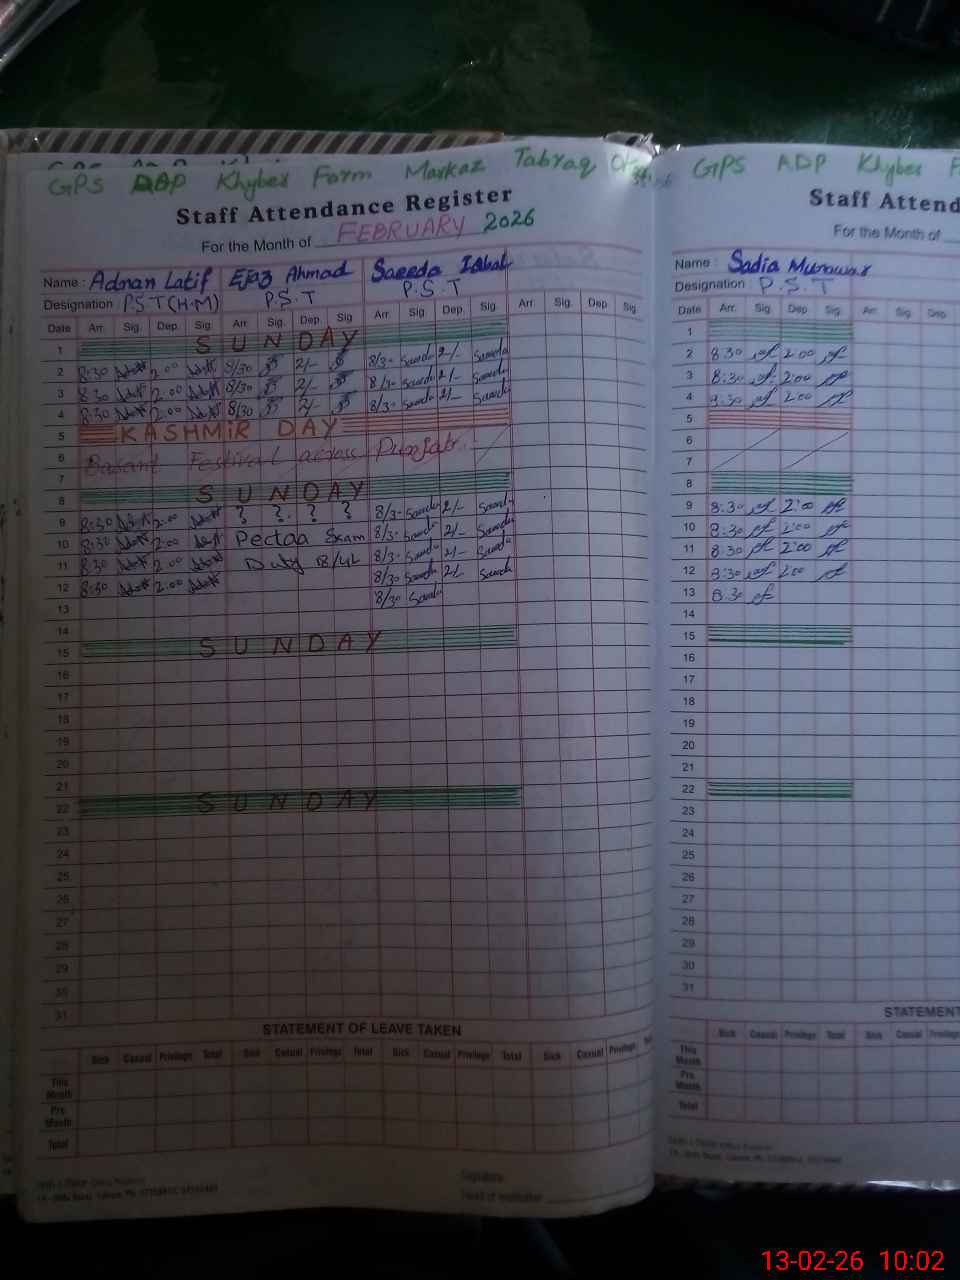 GPS ADP Khyber Farm Markaz Tabraq
Staff Attendance Register
For the Month of FEBRUARY 2026
Name : Adnan Latif Ejaz Ahmad Saeeda Iqbal
Designation P.S.T (H.M) P.S.T P.S.T
Date Arr. Sig. Dep. Sig. Arr. Sig. Dep. Sig. Arr. Sig. Dep. Sig. Arr. Sig. Dep. Sig.
1 SUNDAY
2 8:30 2:00 8/30 2/- 8/30 Saeeda 2/- Saeeda
3 8:30 2:00 8/30 2/- 8/30 Saeeda 2/- Saeeda
4 8:30 2:00 8/30 2/- 8/30 Saeeda 2/- Saeeda
5 KASHMIR DAY
6 Basant Festival across Punjab.
7
8 SUNDAY
9 8:30 2:00 ? ? ? ? 8/30 Saeeda 2/- Saeeda
10 8:30 2:00 Pectaa Exam 8/30 Saeeda 2/- Saeeda
11 8:30 2:00 Duty 8/30 Saeeda 2/- Saeeda
12 8:30 2:00 8/30 Saeeda 2/- Saeeda
13 8/30 Saeeda
14
15 SUNDAY
16
17
18
19
20
21
22 SUNDAY
23
24
25
26
27
28
29
30
31
STATEMENT OF LEAVE TAKEN
Sick Casual Privilege Total Sick Casual Privilege Total Sick Casual Privilege Total Sick Casual Privilege
This Month
Pre. Month
Total
Signature
Head of Institution
GPS ADP Khyber F
Staff Attend
For the Month of
Name : Sadia Munawar
Designation P.S.T
Date Arr. Sig. Dep. Sig. Arr. Sig. Dep.
1
2 8:30 2:00
3 8:30 2:00
4 8:30 2:00
5
6
7
8
9 8:30 2:00
10 8:30 2:00
11 8:30 2:00
12 8:30 2:00
13 8:30
14
15
16
17
18
19
20
21
22
23
24
25
26
27
28
29
30
31
STATEMENT
Sick Casual Privilege Total Sick Casual Privilege
This Month
Pre. Month
Total
13-02-26 10:02